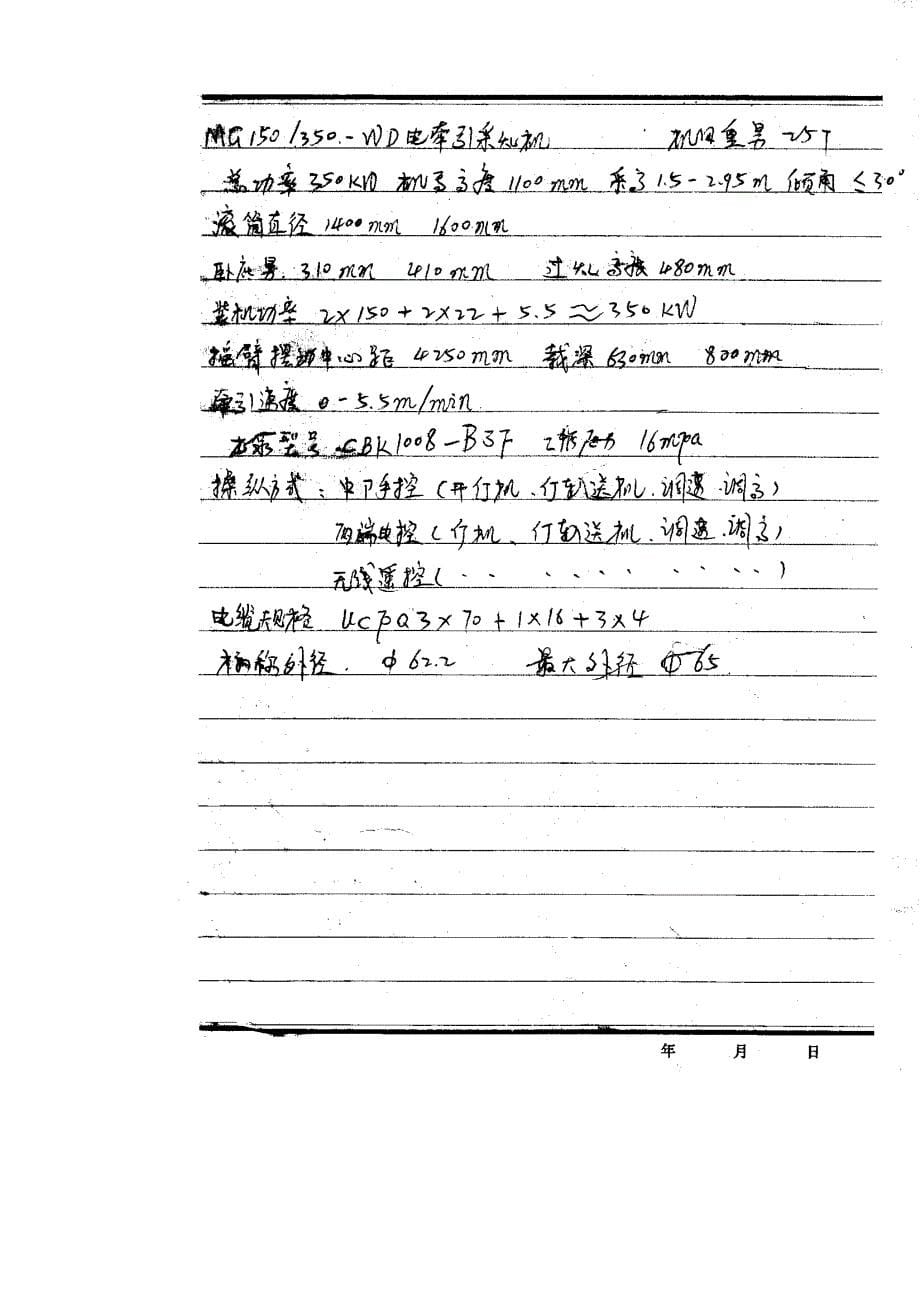 MG150/350-WD电牵引采煤机 机器重量 25T
总功率350KW 机身高度1100mm 采高1.5-2.95m 倾角≤30°
滚筒直径1400mm 1600mm
卧底量.310mm 410mm 过煤高度480mm
装机功率 2×150+2×22+5.5≈350KW
摇臂摆动中心距 4250mm 截深630mm 800mm
牵引速度 0-5.5m/min
泵型号 CBK1008-B3F 工作压力 16mpa
操纵方式:中下手控(开行机、行输送机、调速.调高)
两端电控(行机、行输送机、调速.调高)
无线遥控(.. .... ....)
电缆规格 UCPQ3×70+1×16+3×4
标称外径. φ62.2 最大外径 φ65
年 月 日